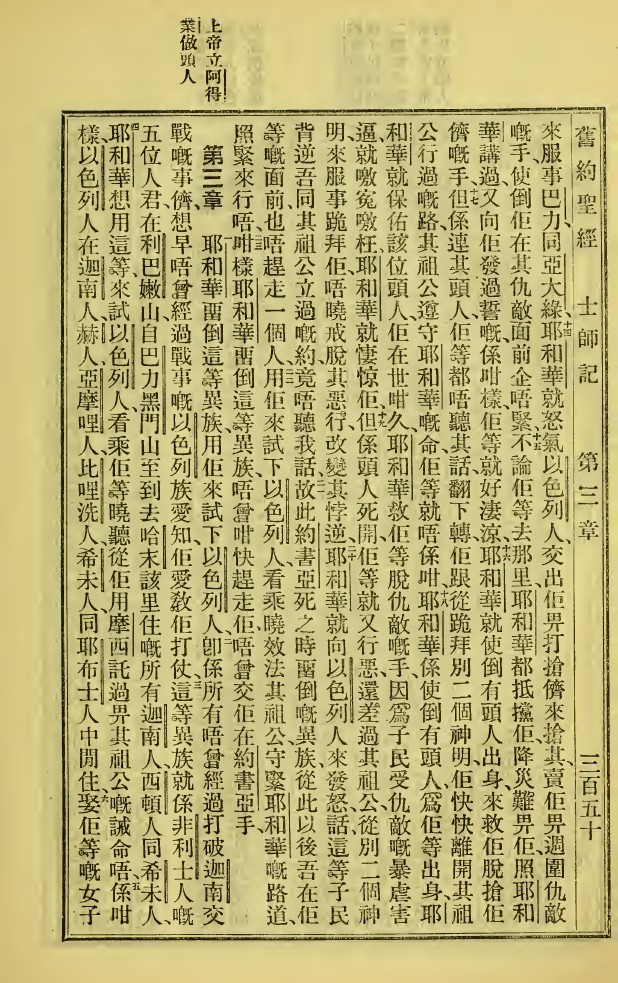 舊約聖經 士師記 第三章 三百五十
上帝立阿得
業做頭人
來服事巴力同亞大綠、十四耶和華就怒氣以色列人、交出佢畀打搶儕來搶其、賣佢畀週圍仇敵
嘅手、使倒佢在其仇敵面前企唔緊、十五不論佢等去那里、耶和華都抵攩佢、降災難畀佢、照耶和
華講過、又向佢發過誓嘅、係咁樣佢等就好淒涼、十六耶和華就使倒有頭人出身、來救佢脫搶佢
儕嘅手、十七但係連其頭人、佢等都唔聽其話、翻下轉佢跟從跪拜別二個神明、佢快快離開其祖
公行過嘅路、其祖公遵守耶和華嘅命、佢等就唔係咁、十八耶和華係使倒有頭人、爲佢等出身、耶
和華就保佑該位頭人、佢在世咁久、耶和華救佢等脫仇敵嘅手、因爲子民受仇敵嘅暴虐害
逼、就噭寃噭枉、耶和華就悽惊佢、十九但係頭人死開、佢等就又行惡、還差過其祖公、從別二個神
明、來服事跪拜佢、唔曉戒脫其惡行、改變其悖逆、二十耶和華就向以色列人來發怒話、這等子民
背逆吾同其祖公立過嘅約、竟唔聽我話、二一故此約書亞死之時、畱倒嘅異族、從此以後吾在佢
等嘅面前、也唔趕走一個人、二二用佢來試下以色列人、看乘曉效法其祖公、守緊耶和華嘅路道、
照緊來行唔、二三咁樣耶和華畱倒這等異族、唔曾咁快趕走佢、唔曾交佢在約書亞手、
第三章 耶和華畱倒這等異族、用佢來試下以色列人、卽係所有唔曾經過打破迦南交
戰嘅事儕、二想早唔曾經過戰事嘅以色列族、愛知佢、愛敎佢打仗、三這等異族、就係非利士人嘅
五位人君、在利巴嫩山自巴力黑門山、至到去哈末該里住嘅所有迦南人、西頓人同希未人、
四耶和華想用這等、來試以色列人、看乘佢等曉聽從佢用摩西託過畀其祖公嘅誡命唔、五係咁
樣以色列人在迦南人、赫人、亞摩哩人、比哩洗人、希未人、同耶布士人中間住、六娶佢等嘅女子